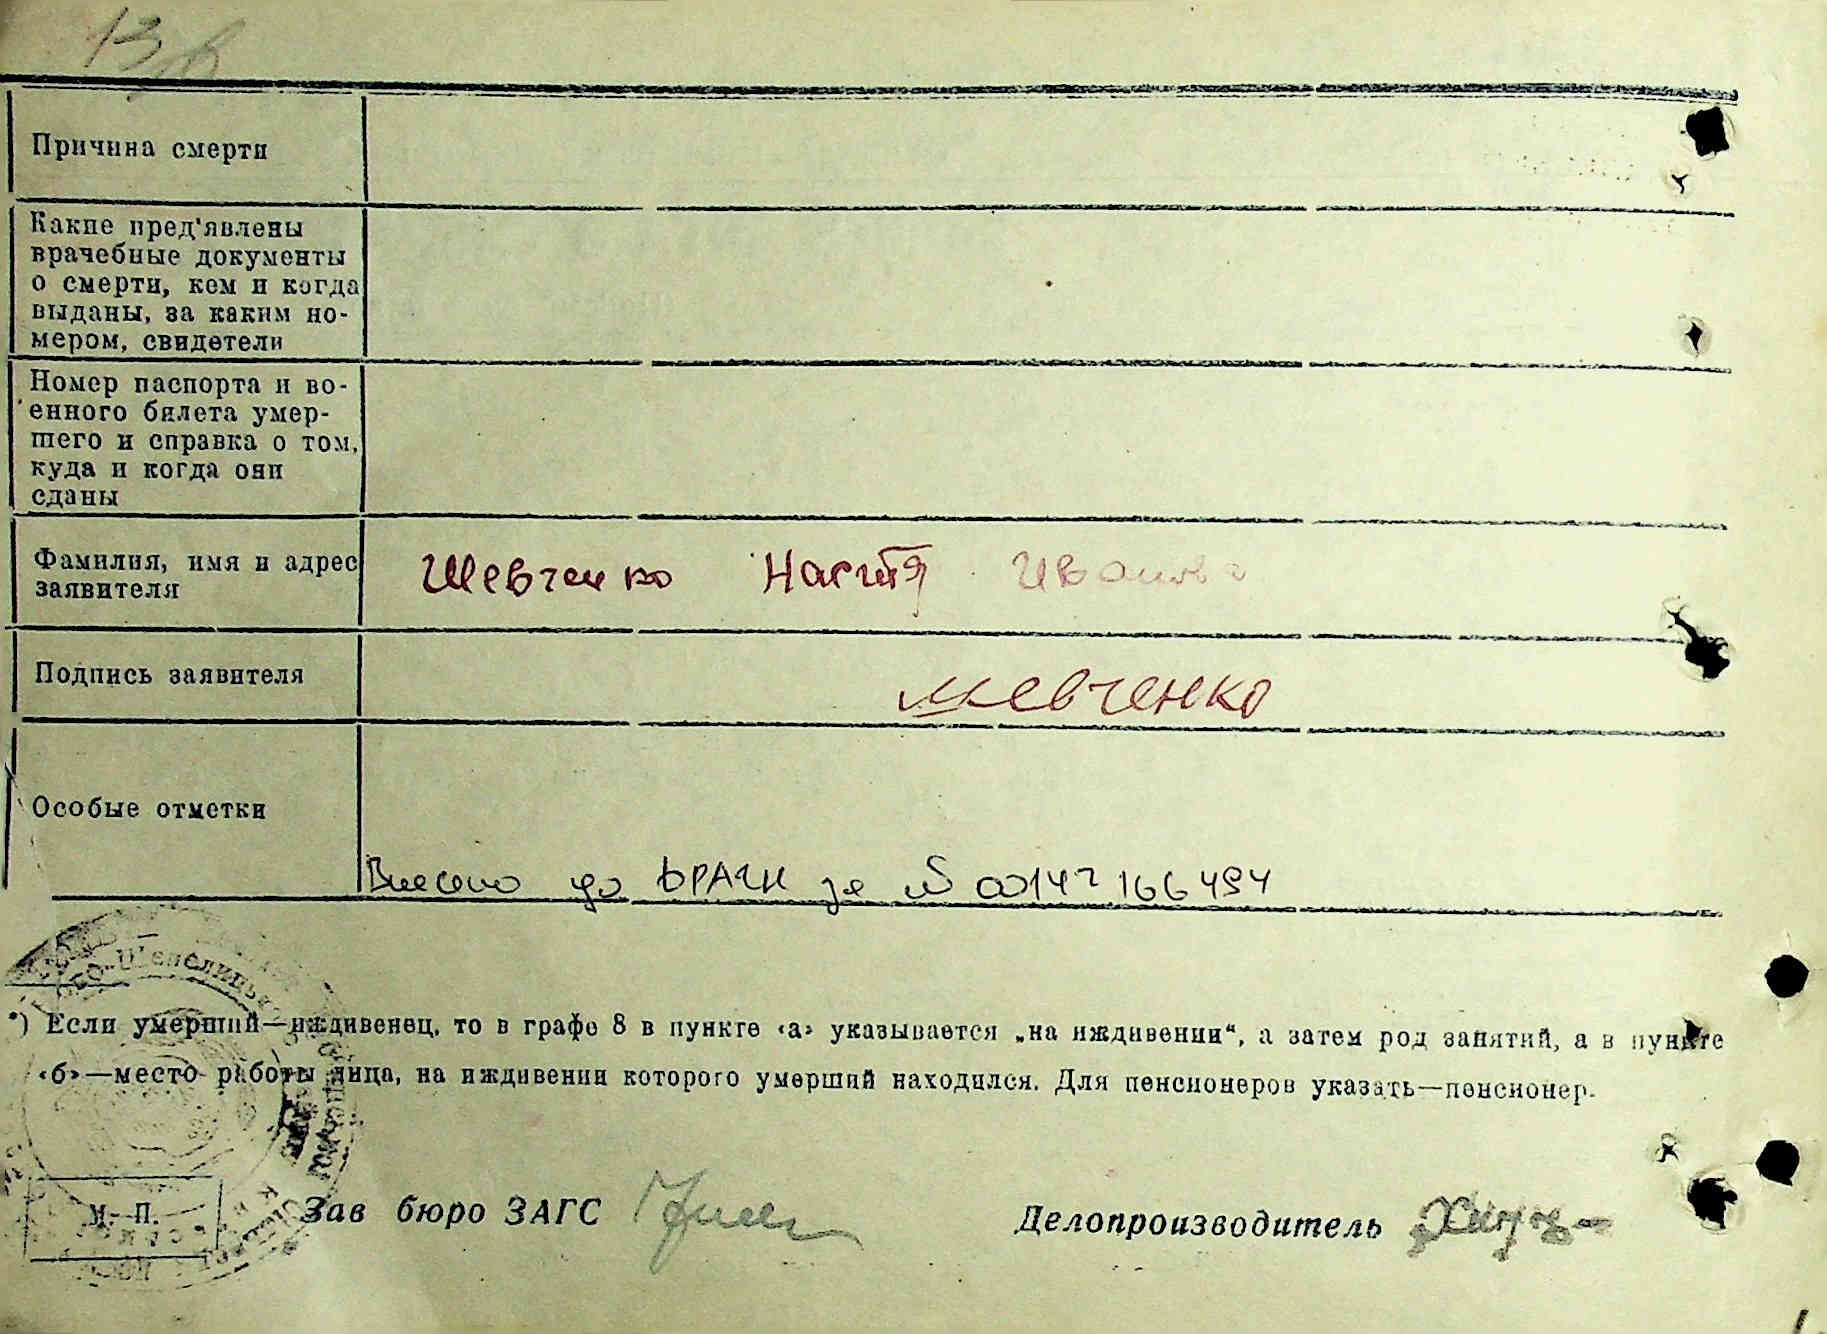 13
Причина смерти
Какие пред'явлены
врачебные документы
о смерти, кем и когда
выданы, за каким но-
мером, свидетели
Номер паспорта и во-
енного билета умер-
шего и справка о том,
куда и когда они
сданы
Фамилия, имя и адрес
заявителя
Шевченко Настя Иванова
Подпись заявителя
Шевченко
Особые отметки
Внесено до ДРАЦС за № 00147166494
*) Если умерший—иждивенец, то в графе 8 в пункте «а» указывается „на иждивении“, а затем род занятий, а в пункте
«б»—место работы лица, на иждивении которого умерший находился. Для пенсионеров указать—пенсионер.
М. П.
Зав бюро ЗАГС
Делопроизводитель